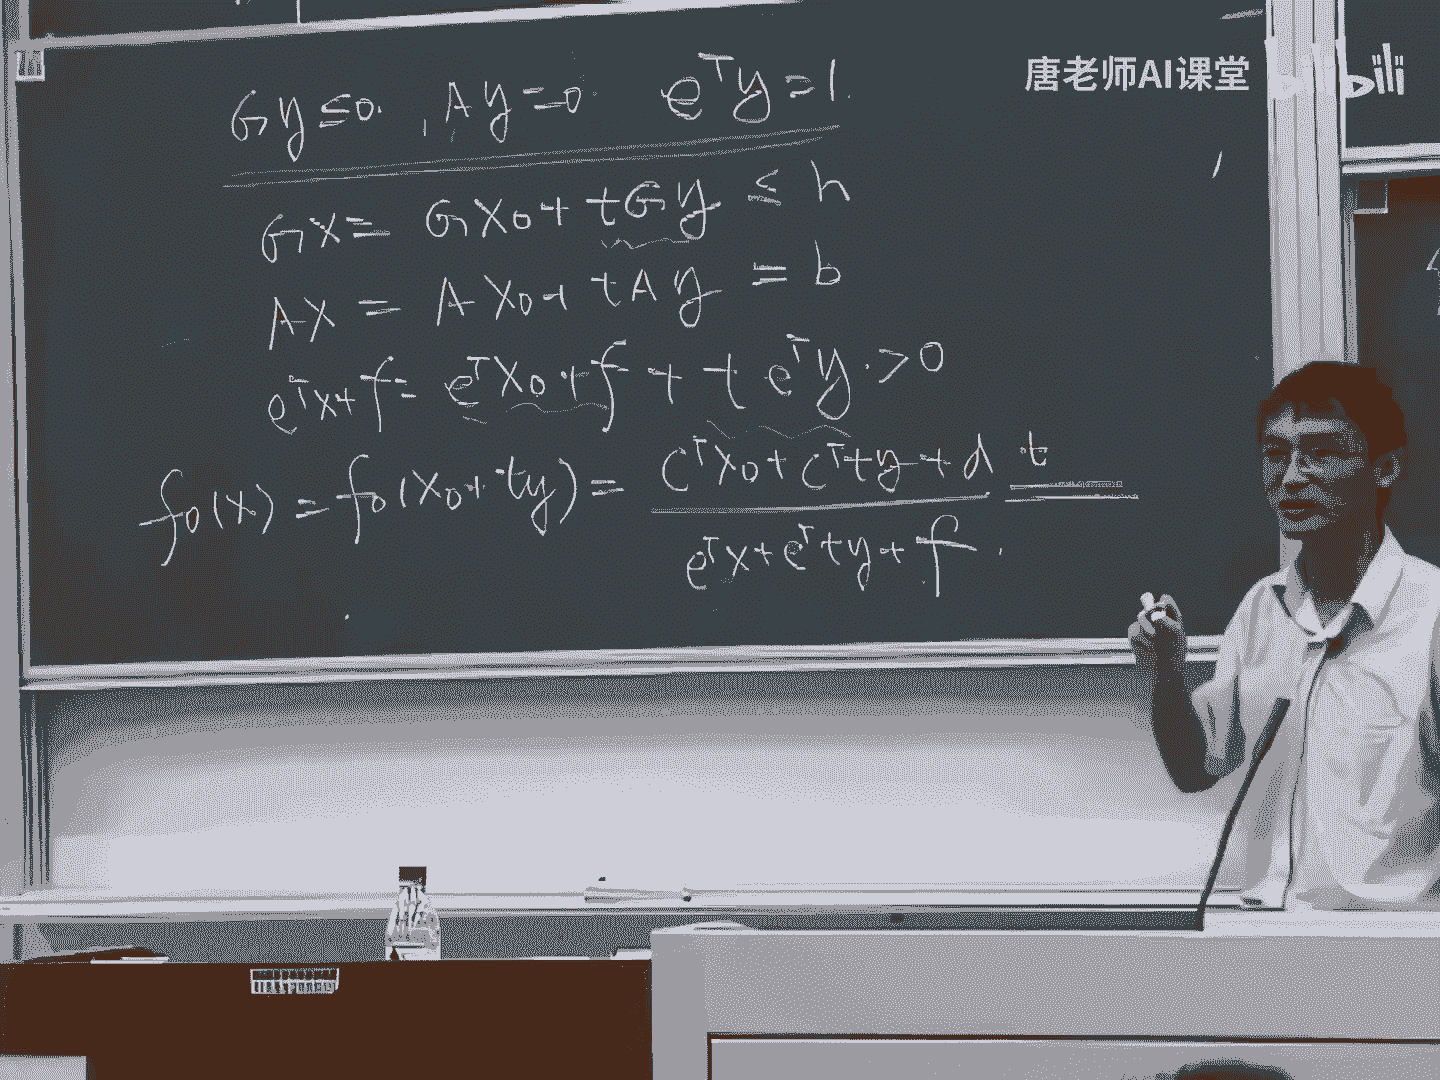 唐老师AI课堂 bili
Gy≤0, Ay=0 eᵀy=1.
Gx= Gx₀+tGy ≤ h
Ax = Ax₀+tAy = b
eᵀx+f= eᵀx₀+f+teᵀy>0
f₀(x)=f₀(x₀+ty)= (cᵀx₀+cᵀty+d)/(eᵀx+eᵀty+f) t